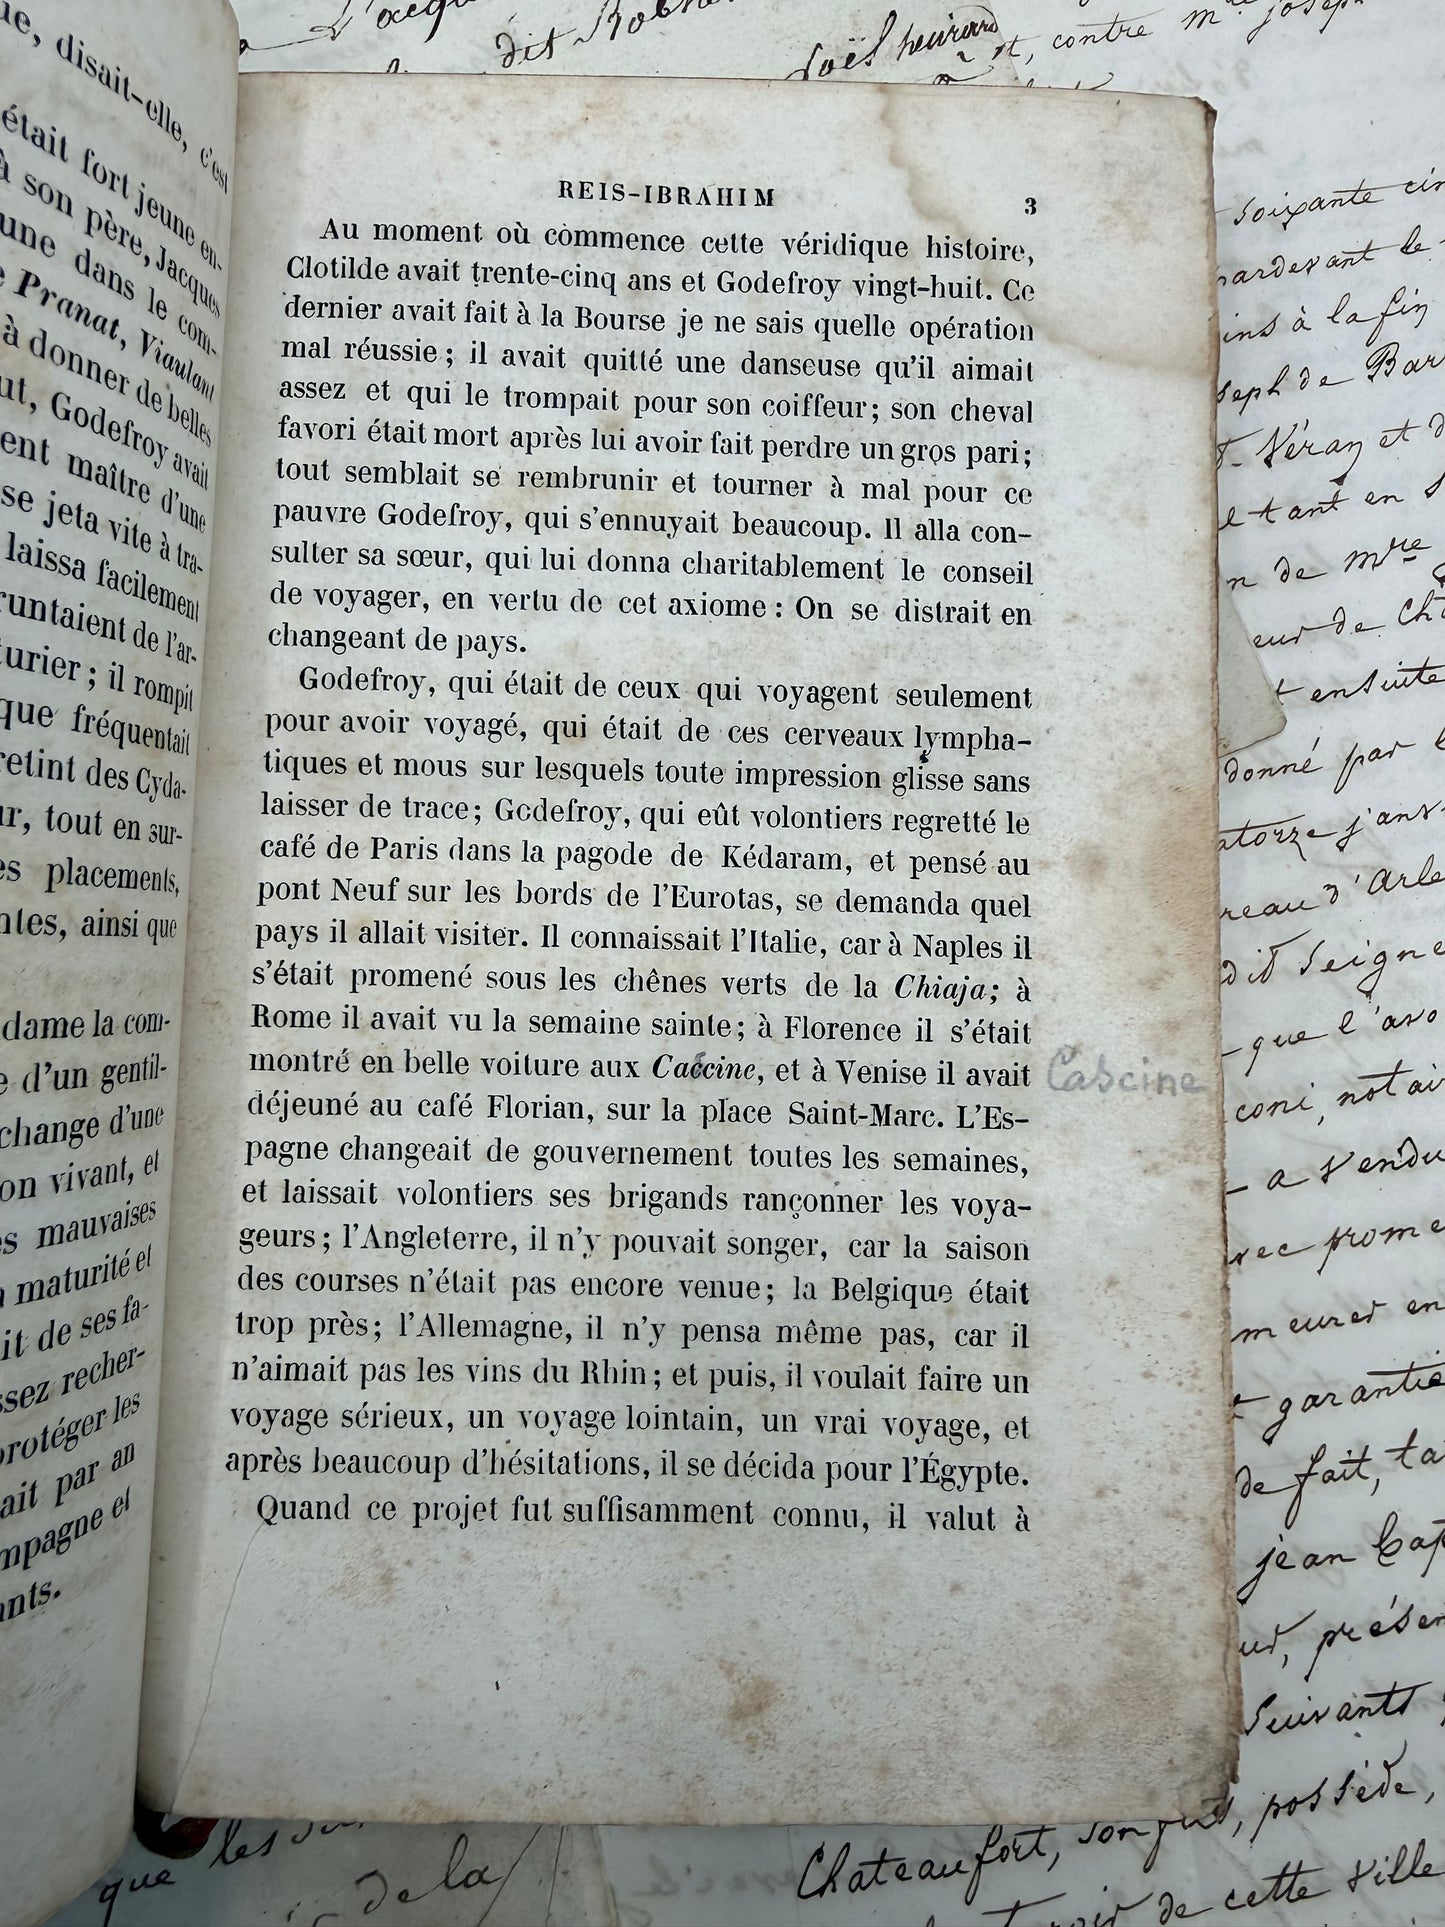 ue, disait-elle, c'est
était fort jeune en-
à son père, Jacques
une dans le com-
Pranat, Viaulant
à donner de belles
ut, Godefroy avait
ent maître d'une
se jeta vite à tra-
laissa facilement
runtaient de l'ar-
turier ; il rompit
que fréquentait
retint des Cyda-
ur, tout en sur-
es placements,
ntes, ainsi que
dame la com-
e d'un gentil-
change d'une
on vivant, et
es mauvaises
maturité et
it de ses fa-
ssez recher-
protéger les
ait par an
mpagne et
ants.
REIS-IBRAHIM
3
Au moment où commence cette véridique histoire,
Clotilde avait trente-cinq ans et Godefroy vingt-huit. Ce
dernier avait fait à la Bourse je ne sais quelle opération
mal réussie ; il avait quitté une danseuse qu'il aimait
assez et qui le trompait pour son coiffeur ; son cheval
favori était mort après lui avoir fait perdre un gros pari ;
tout semblait se rembrunir et tourner à mal pour ce
pauvre Godefroy, qui s'ennuyait beaucoup. Il alla con-
sulter sa sœur, qui lui donna charitablement le conseil
de voyager, en vertu de cet axiome : On se distrait en
changeant de pays.
Godefroy, qui était de ceux qui voyagent seulement
pour avoir voyagé, qui était de ces cerveaux lympha-
tiques et mous sur lesquels toute impression glisse sans
laisser de trace ; Godefroy, qui eût volontiers regretté le
café de Paris dans la pagode de Kédaram, et pensé au
pont Neuf sur les bords de l'Eurotas, se demanda quel
pays il allait visiter. Il connaissait l'Italie, car à Naples il
s'était promené sous les chênes verts de la Chiaja ; à
Rome il avait vu la semaine sainte ; à Florence il s'était
montré en belle voiture aux Caccine, et à Venise il avait
Cascine
déjeuné au café Florian, sur la place Saint-Marc. L'Es-
pagne changeait de gouvernement toutes les semaines,
et laissait volontiers ses brigands rançonner les voya-
geurs ; l'Angleterre, il n'y pouvait songer, car la saison
des courses n'était pas encore venue ; la Belgique était
trop près ; l'Allemagne, il n'y pensa même pas, car il
n'aimait pas les vins du Rhin ; et puis, il voulait faire un
voyage sérieux, un voyage lointain, un vrai voyage, et
après beaucoup d'hésitations, il se décida pour l'Égypte.
Quand ce projet fut suffisamment connu, il valut à
dit
contre mre joseph
soixante cin
pardevant le
ins à la fin
seph de Bar
Véran et d
etant en
n de mre
eur de Cha
ensuite
donné par
atorze
reau d'Arle
dit seigne
que l'avo
coni, notai
a vendu
vec prome
meurer en
garantie
de fait,
jean Cap
présen
suivants
possède,
Chateaufort,
de cette ville
que les
de la